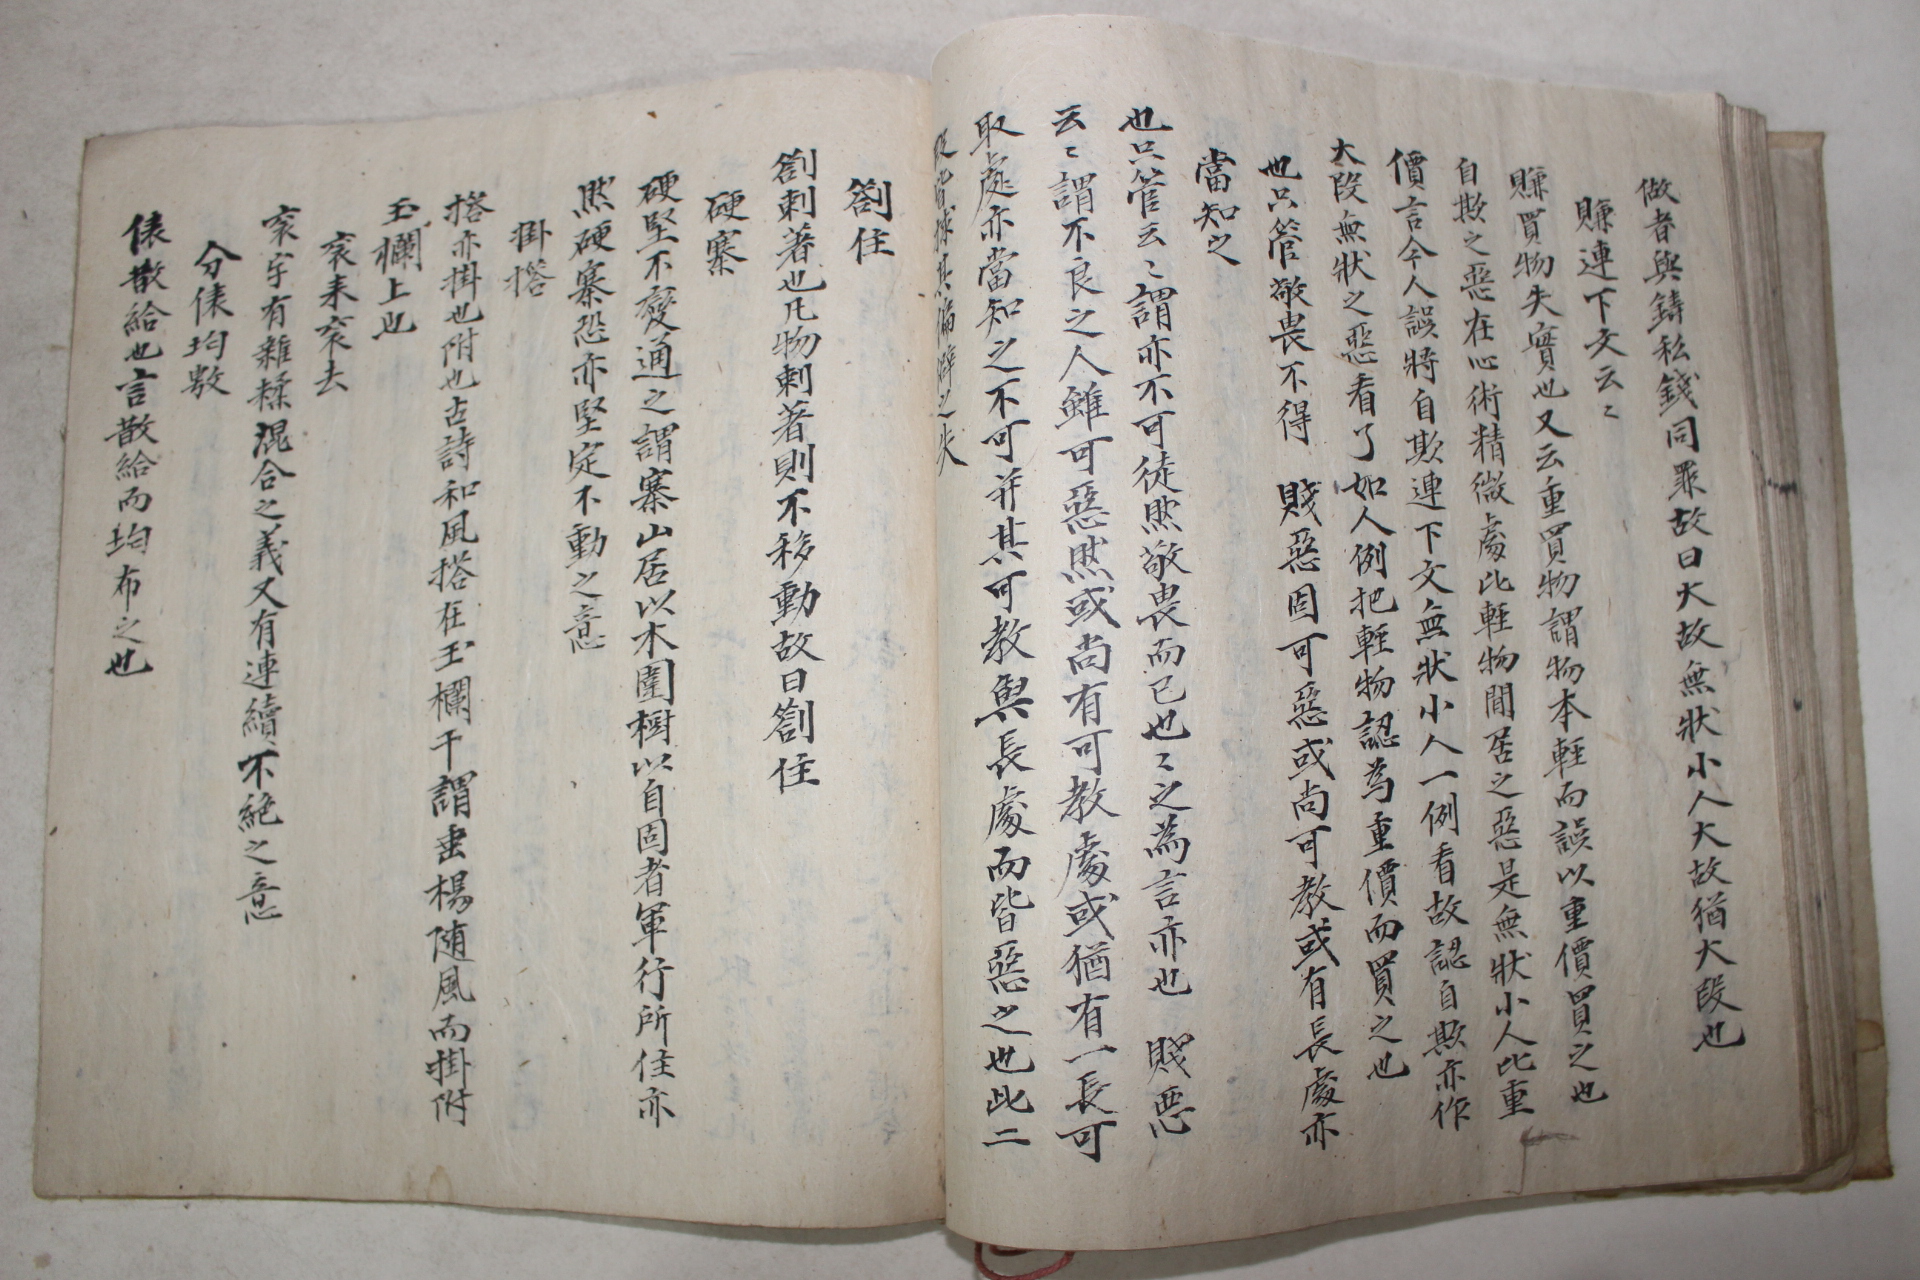 做者與鑄私錢同罪故曰大故無狀小人大故猶大段也
賺連下文云〻
賺買物失實也又云重買物謂物本輕而誤以重價買之也
自欺之惡在心術精微處比輕物閒居之惡是無狀小人比重
價言今人誤將自欺連下文無狀小人一例看故認自欺亦作
大段無狀之惡看了如人例把輕物認為重價而買之也
也只管敬畏不得 賤惡固可惡或尚可教或有長處亦
當知之
也只管云〻謂亦不可徒然敬畏而已也〻之為言亦也 賤惡
云〻謂不良之人雖可惡然或尚有可教處或猶有一長可
取處亦當知之不可并其可教與長處而皆惡之也此二
段皆捄其偏僻之失
劄住
劄刺著也凡物刺著則不移動故曰劄住
硬寨
硬堅不變通之謂寨山居以木圍樹以自固者軍行所住亦
然硬寨恐亦堅定不動之意
掛搭
搭亦掛也附也古詩和風搭在玉欄干謂垂楊随風而掛附
玉欄上也
衮來衮去
衮字有雜糅混合之義又有連續不絶之意
分俵均敷
俵散給也言散給而均布之也